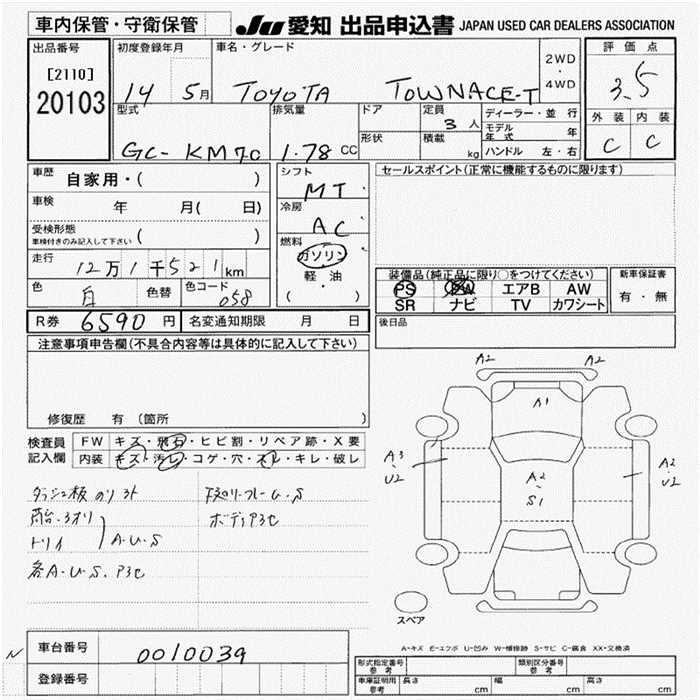 車内保管・守衛保管
JU 愛知 出品申込書 JAPAN USED CAR DEALERS ASSOCIATION
出品番号
[2110]
20103
初度登録年月
14 5月
車名・グレード
TOYOTA TOWNACE-T
2WD
・
4WD
評価点
3.5
外装 内装
C C
型式
GC-KM70
排気量
1.78 CC
ドア
形状
定員
3人
積載
kg
ディーラー・並行
モデル年式 年
ハンドル 左・右
車歴 自家用・( )
車検 年 月( 日)
受検形態
車検付きのみ記入して下さい ( )
走行 12万1千521km
色 白 色替 色コード 058
シフト
MT
冷房
AC
燃料
ガソリン
・
軽・油
( ・ )
セールスポイント(正常に機能するものに限ります)
装備品(純正品に限り○をつけてください)
PS PW エアB AW
SR ナビ TV カワシート
新車保証書
有・無
R券 6590円 名変通知期限 月 日
後日品
注意事項申告欄(不具合内容等は具体的に記入して下さい)
修復歴 有 (箇所 )
検査員
記入欄
FW キズ・飛石・ヒビ割・リペア跡・X要
内装 キズ・汚レ・コゲ・穴・スレ・キレ・破レ
ダッシュ板のリ予ト
A・U・S
各A・U・S
フレーム・S
ボディ
A2 A2
A1
A3
・
U2
A2
S1
A2
・
U2
スペア
A-キズ E-エクボ U-凹み W-補修跡 S-サビ C-腐食 XX-交換済
N
車台番号 0010039
登録番号
形式指定番号
参考
類別区分番号
参考
車庫証明用
参考
長さ cm 幅 cm 高さ cm